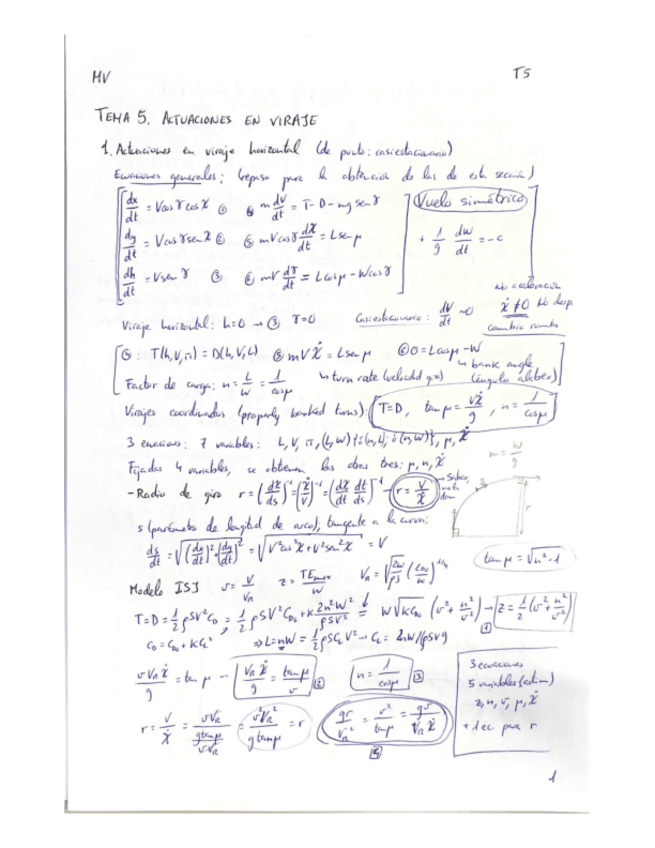 MV T5
TEMA 5. ACTUACIONES EN VIRAJE
1. Actuaciones en viraje horizontal (de punto: casiestacionario)
Ecuaciones generales: (repaso para la obtención de las de esta sección)
dx/dt = V cos γ cos χ ① ④ m dV/dt = T - D - mg sen γ Vuelo simétrico
dy/dt = V cos γ sen χ ② ⑤ mV cos γ dχ/dt = L sen μ + 1/g dW/dt = -c
dh/dt = V sen γ ③ ⑥ mV dγ/dt = L cos μ - W cos γ
No aceleración
Viraje horizontal: ḣ=0 → ③ γ=0 Casiestacionario: dV/dt ≈0 χ̇ ≠ 0 No desp
cambia rumbo
④: T(h,V,π) = D(h,V,L) ⑤ mVχ̇ = L sen μ ⑥ 0 = L cos μ - W
Factor de carga: n = L/W = 1/cos μ ↳ turn rate (velocidad giro) ↳ bank angle (ángulo alabeo)
Virajes coordinados (properly banked turns): T=D, tan μ = Vχ̇/g, n = 1/cos μ
3 ecuaciones: 7 variables: h, V, π, (L,W) ó (n,L) ó (n,W), μ, χ̇
m = W/g
Fijadas 4 variables, se obtienen las otras tres: μ, n, χ̇
- Radio de giro r = (dχ/ds)⁻¹ = (χ̇/V)⁻¹ = (dχ/dt dt/ds)⁻¹ → r = V/χ̇
r
s (parámetro de longitud de arco); tangente a la curva:
ds/dt = √((dx/dt)² + (dy/dt)²) = √(V² cos² χ + V² sen² χ) = V
tan μ = √(n² - 1)
Modelo ISJ v = V/V_R z = TE_max/W V_R = √(2W/ρS) (k/C_D0)^1/4
T = D = 1/2 ρSV²C_D = 1/2 ρSV²C_D0 + k 2n²W²/ρSV² = W√(kC_D0) (v² + n²/v²) → z = 1/2 (v² + n²/v²) 1
C_D = C_D0 + kC_L² ⇒ L = nW = 1/2 ρSC_L V² → C_L = 2nW/ρSV²
vV_R χ̇/g = tan μ → V_R χ̇/g = tan μ/v 2 n = 1/cos μ 3
3 ecuaciones
5 variables (adim)
z, n, v, μ, χ̇
+ 1 ec para r
r = V/χ̇ = vV_R/(g tan μ/vV_R) = v²V_R²/g tan μ = r gr/V_R² = v²/tan μ = gv/V_R χ̇
1